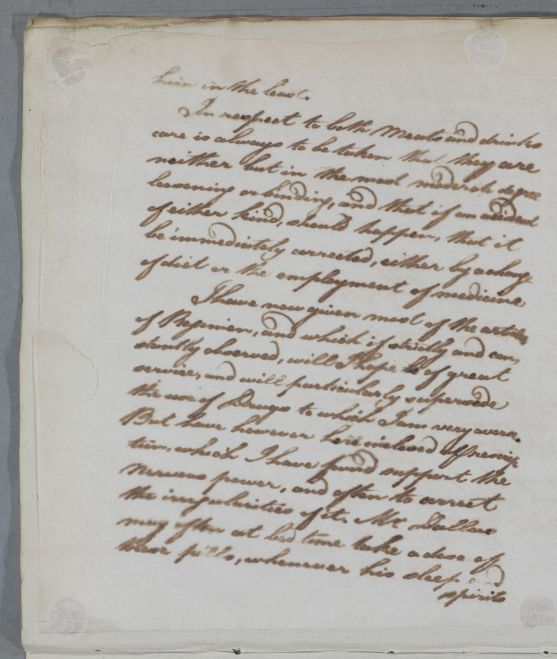 him in the least.
In respect to both Meats and drinks
care is always to be taken that they are
neither but in the most moderate degree
loosening or binding, and that if an accident
of either kind, should happen, that it
be immediately corrected, either by a change
of diet or the employment of medicine
I have now given most of the articles
of Regimen, and which if strictly and con,
stantly observed, will I hope be of great
service, and will particularly supersede
the use of Drugs to which I am very averse.
But have however here inclosed a Prescrip
tion, which I have found support the
nervous power, and often to correct
the irregularities of it. Mr
may often at bed time take a dose of
these pills, whenever his sleep and
spirits